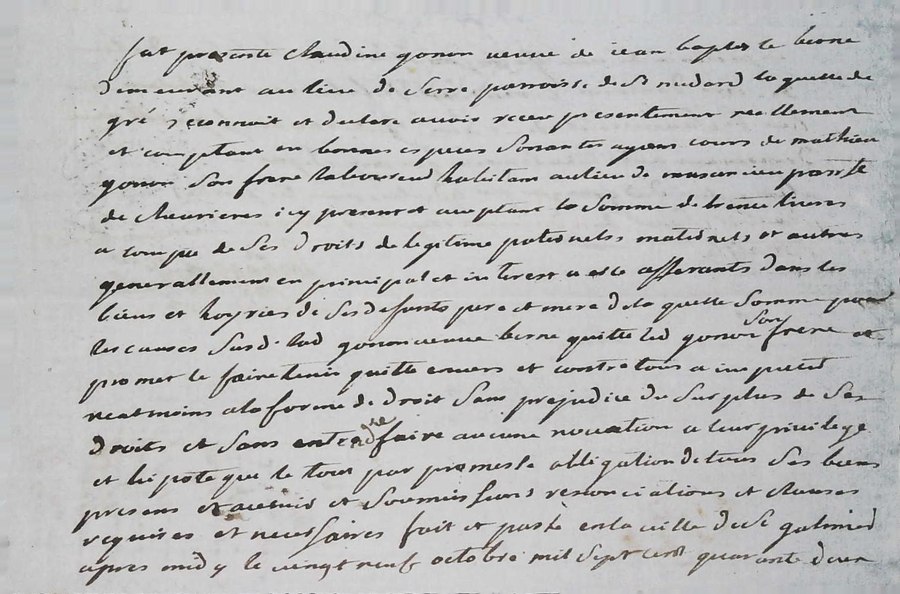 fut presente claudine gonon veuve de jean baptiste berne
demeurant au lieu de Serre parroisse de St medard laquelle de
gré reconnoit et declare avoir receu presentement reellement
et comptant en bonnes especes Sonantes ayans cours de mathieu
gonon Son frere laboureur habitant au lieu de parsse
de chevrieres icy present et aceptant la Somme de trente livres
a compte de Ses Droits de legitime paternels maternels et autres
generallement en principal et interest a elle afferants dans les
biens et hoyries de Ses defunts pere et mere de la quelle Somme pour
les causes Susd. lad gonon veuve berne quitte led gonon Son frere et
promet le faire tenir quitte envers et contre tous a
neatmoins a la forme de Droit Sans prejudice du Surplus de Ses
Droits et Sans entendre faire aucune novation a leur privilege
et hipoteque le tout par promesse obligation de tous Ses biens
presens et avenir et Soumissions renonciations et clauses
requises et necessaires fait et passé en la ville de St galmier
apres midy le vingt neuf octobre mil Sept cent quarante deux